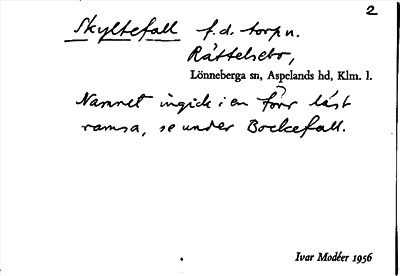 2
Skyltefall f.d. torp n.
Rättelsebo,
Lönneberga sn, Aspelands hd, Klm. l.
Namnet ingick i en förr läst
ramsa, se under Bockefall.
Ivar Modéer 1956